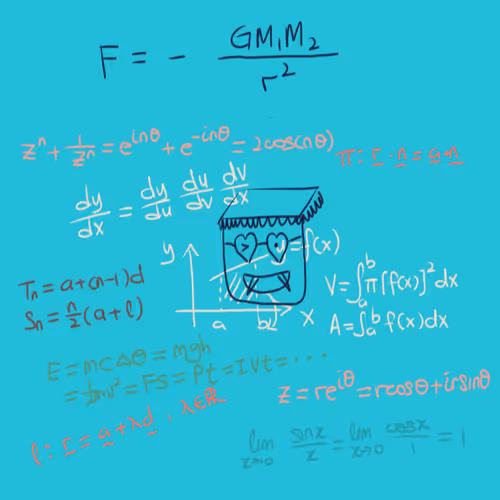 F = - GM₁M₂ / r²
zⁿ + 1/zⁿ = e^{inθ} + e^{-inθ} = 2cos(nθ)
π: r · n = a · n
dy/dx = dy/du du/dv dv/dx
y
y = f(x)
a
b
x
Tₙ = a + (n-1)d
Sₙ = n/2 (a + l)
V = ∫ₐᵇ π[f(x)]² dx
A = ∫ₐᵇ f(x) dx
E = mcΔθ = mgh
= ½mv² = Fs = Pt = IVt = ...
z = re^{iθ} = rcosθ + irsinθ
l: r = a + λd, λ∈ℝ
lim x→0 sinx/x = lim x→0 cosx/1 = 1